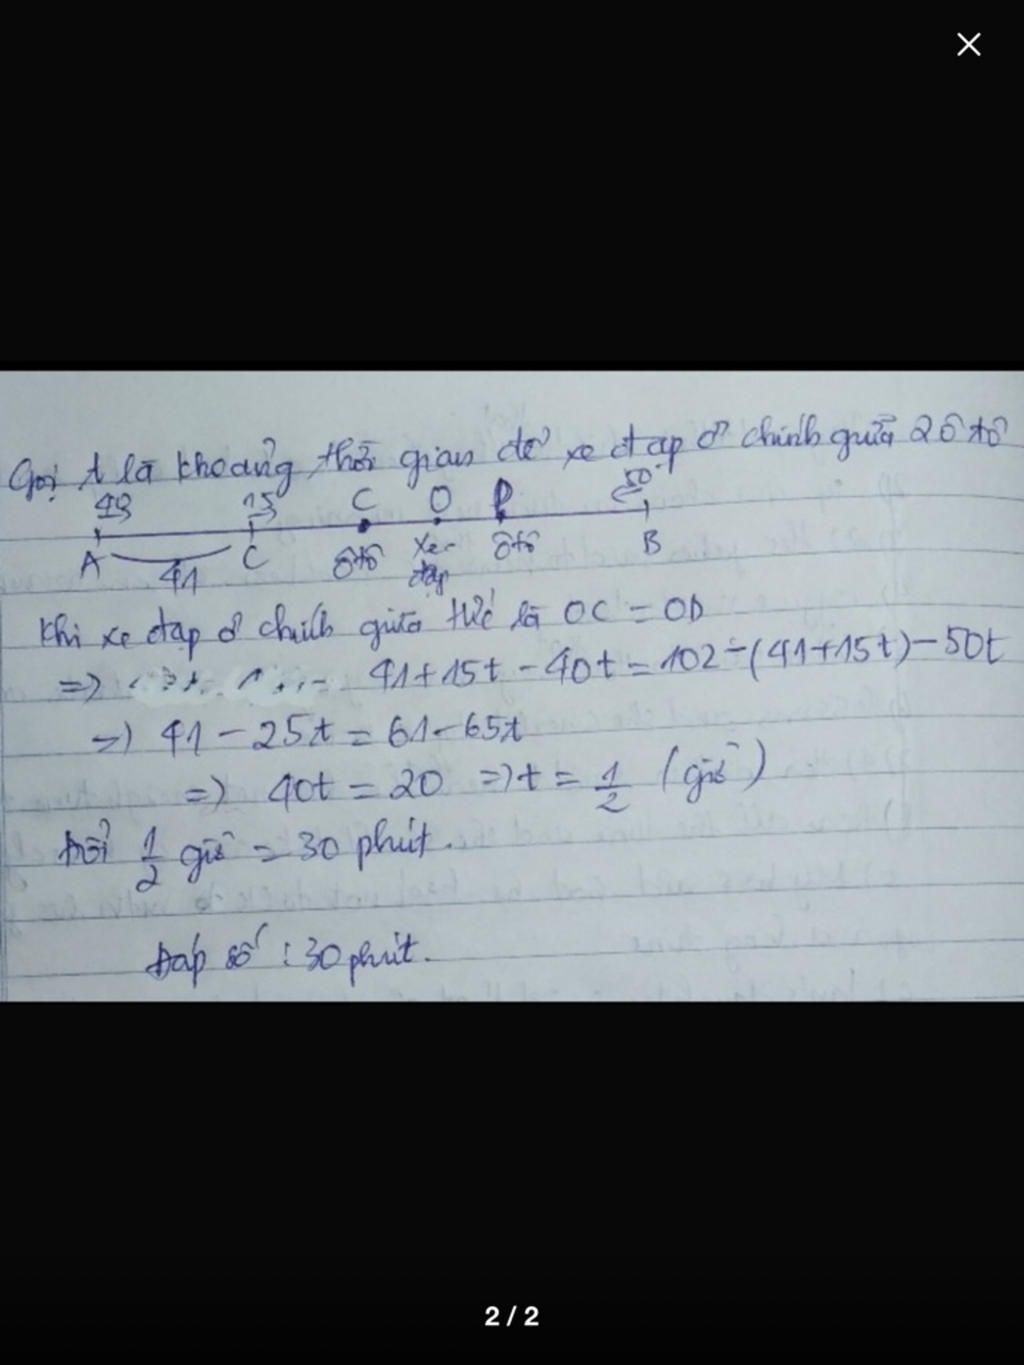 Gọi t là khoảng thời gian để xe đạp ở chính giữa 2 ô tô
15 C O D 50
A 41 C ô tô xe đạp ô tô B
Khi xe đạp ở chính giữa tức là OC = OD
=> 41+15t - 40t = 102 - (41+15t) - 50t
=> 41 - 25t = 61 - 65t
=> 40t = 20 => t = 1/2 (giờ)
Đổi 1/2 giờ = 30 phút.
Đáp số : 30 phút.
2 / 2